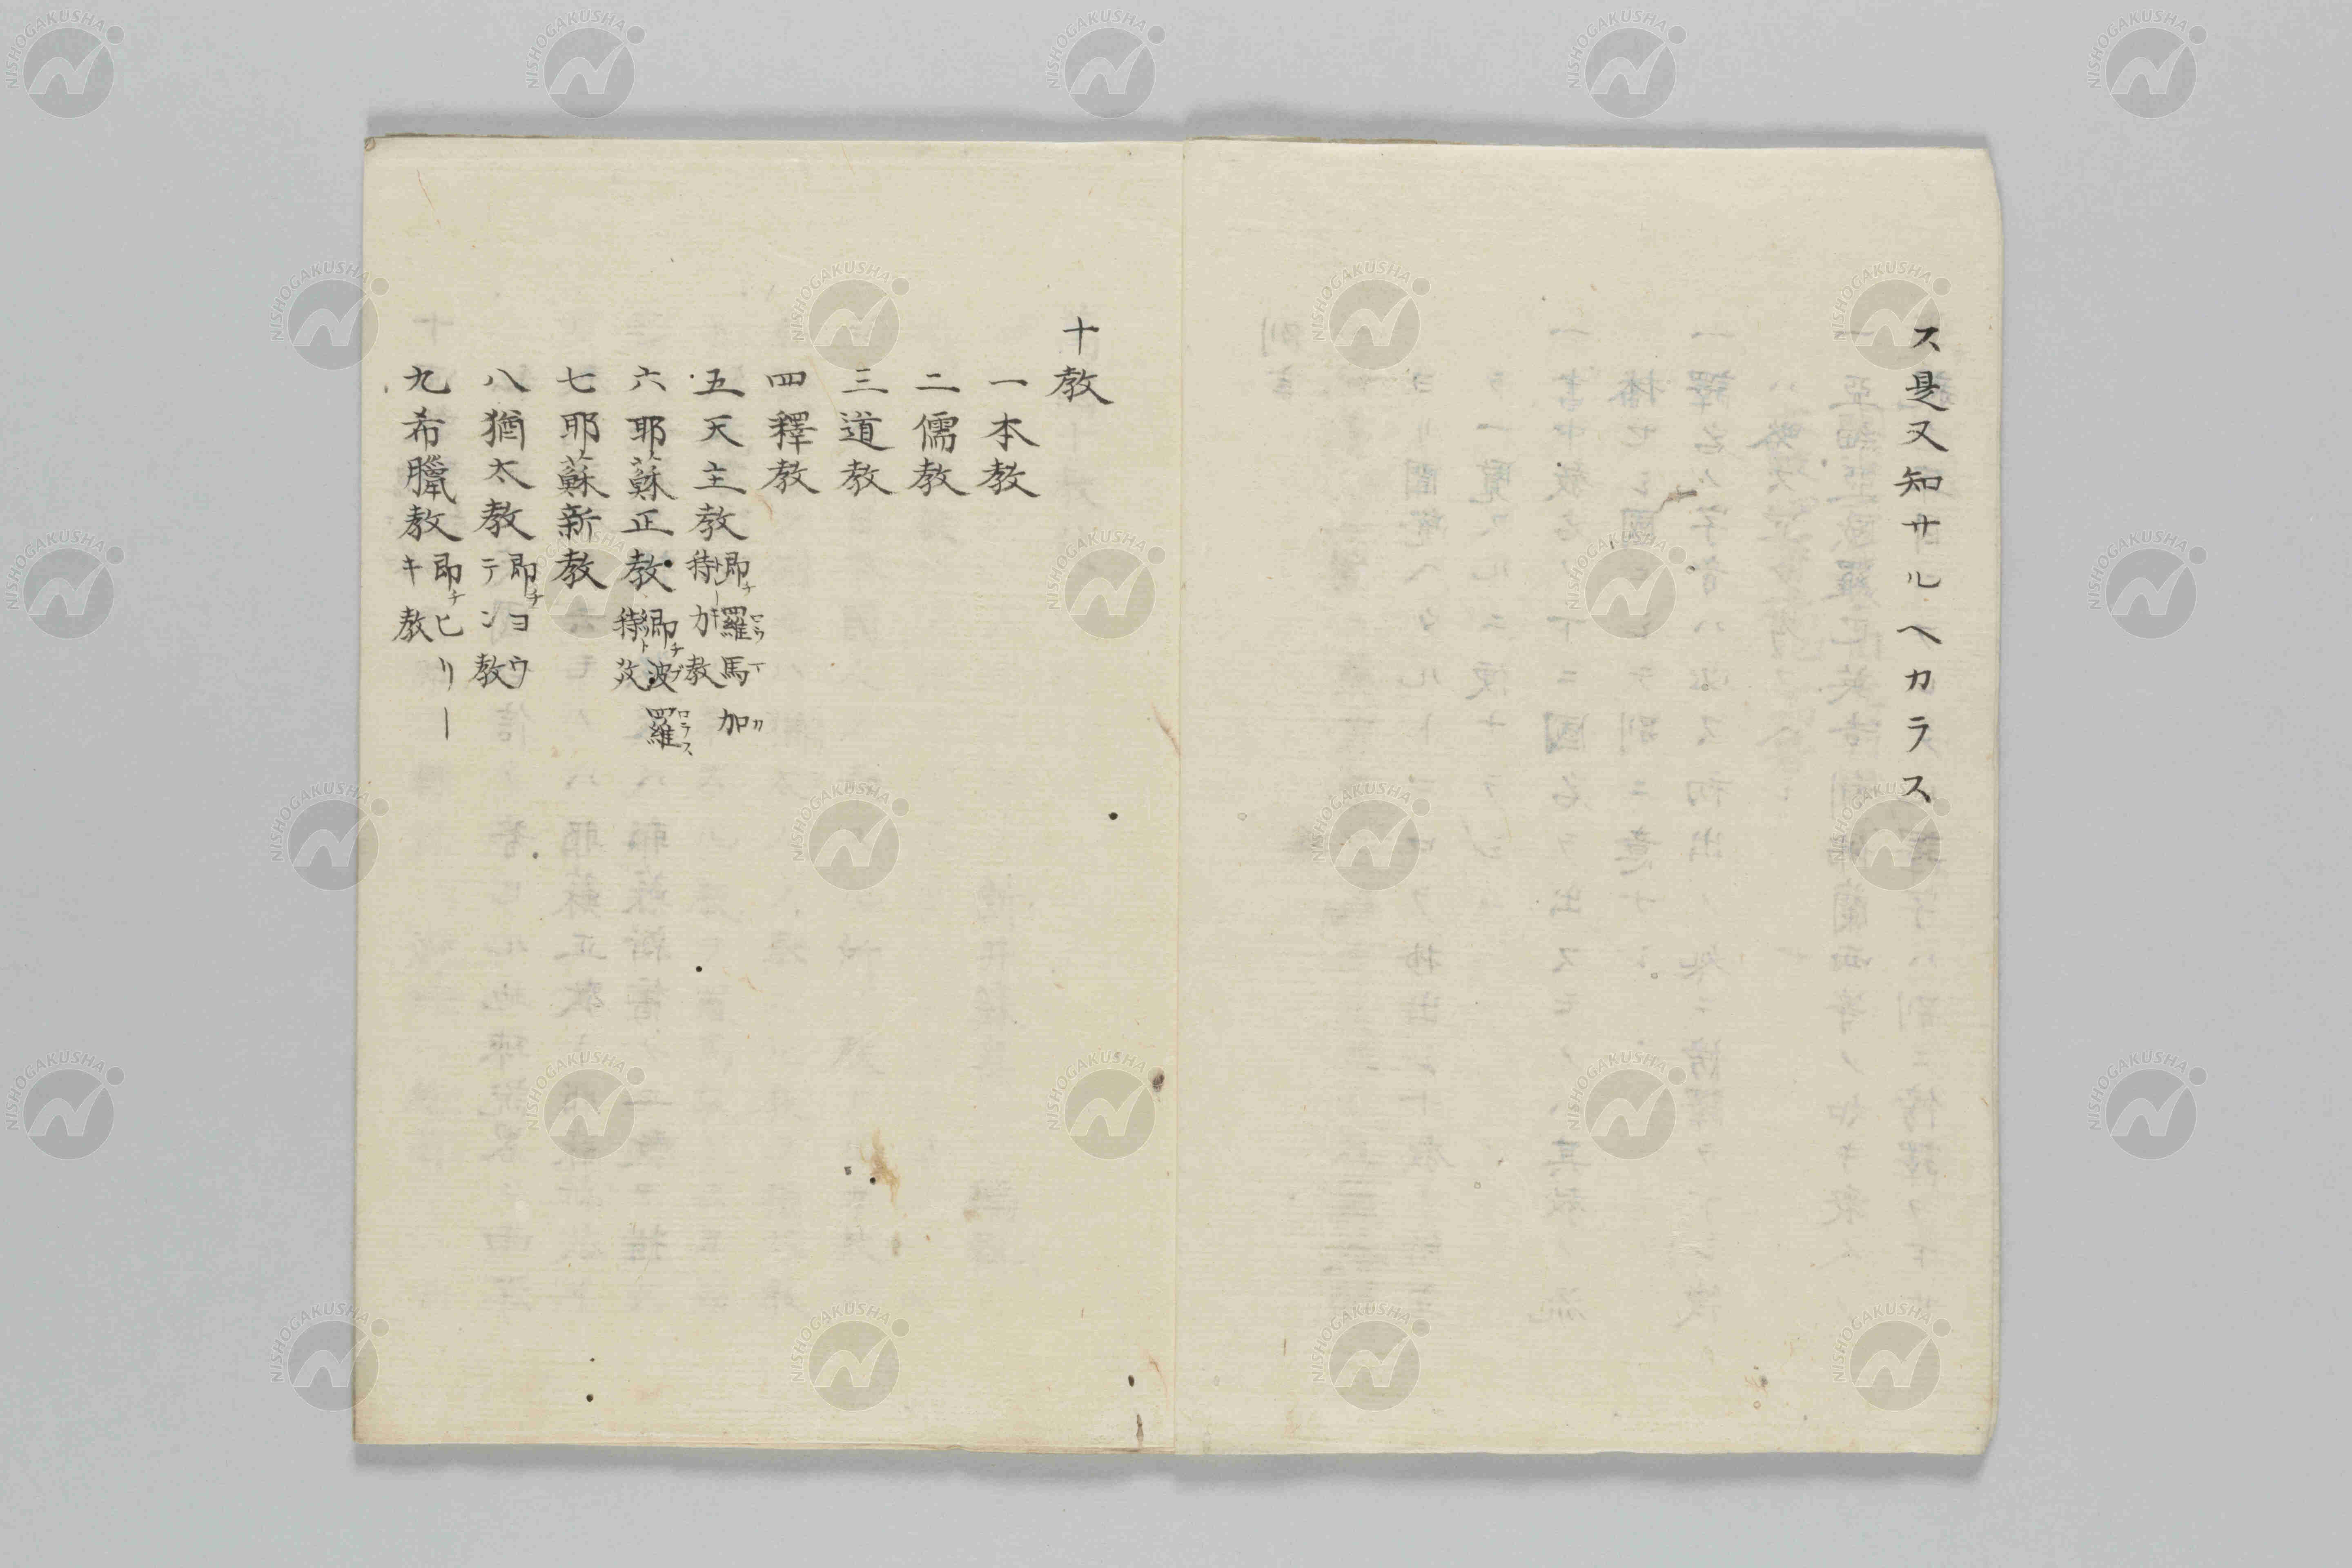 ス是又知サルヘカラス
十教
一本教
二儒教
三道教
四釋教
五天主教 即チ羅馬加 特力教
六耶蘇正教 即チ波羅 特
七耶蘇新教
八猶太教 即チヨウ テン教
九希臘教 即チヒリー キ教
NISHOGAKUSHA